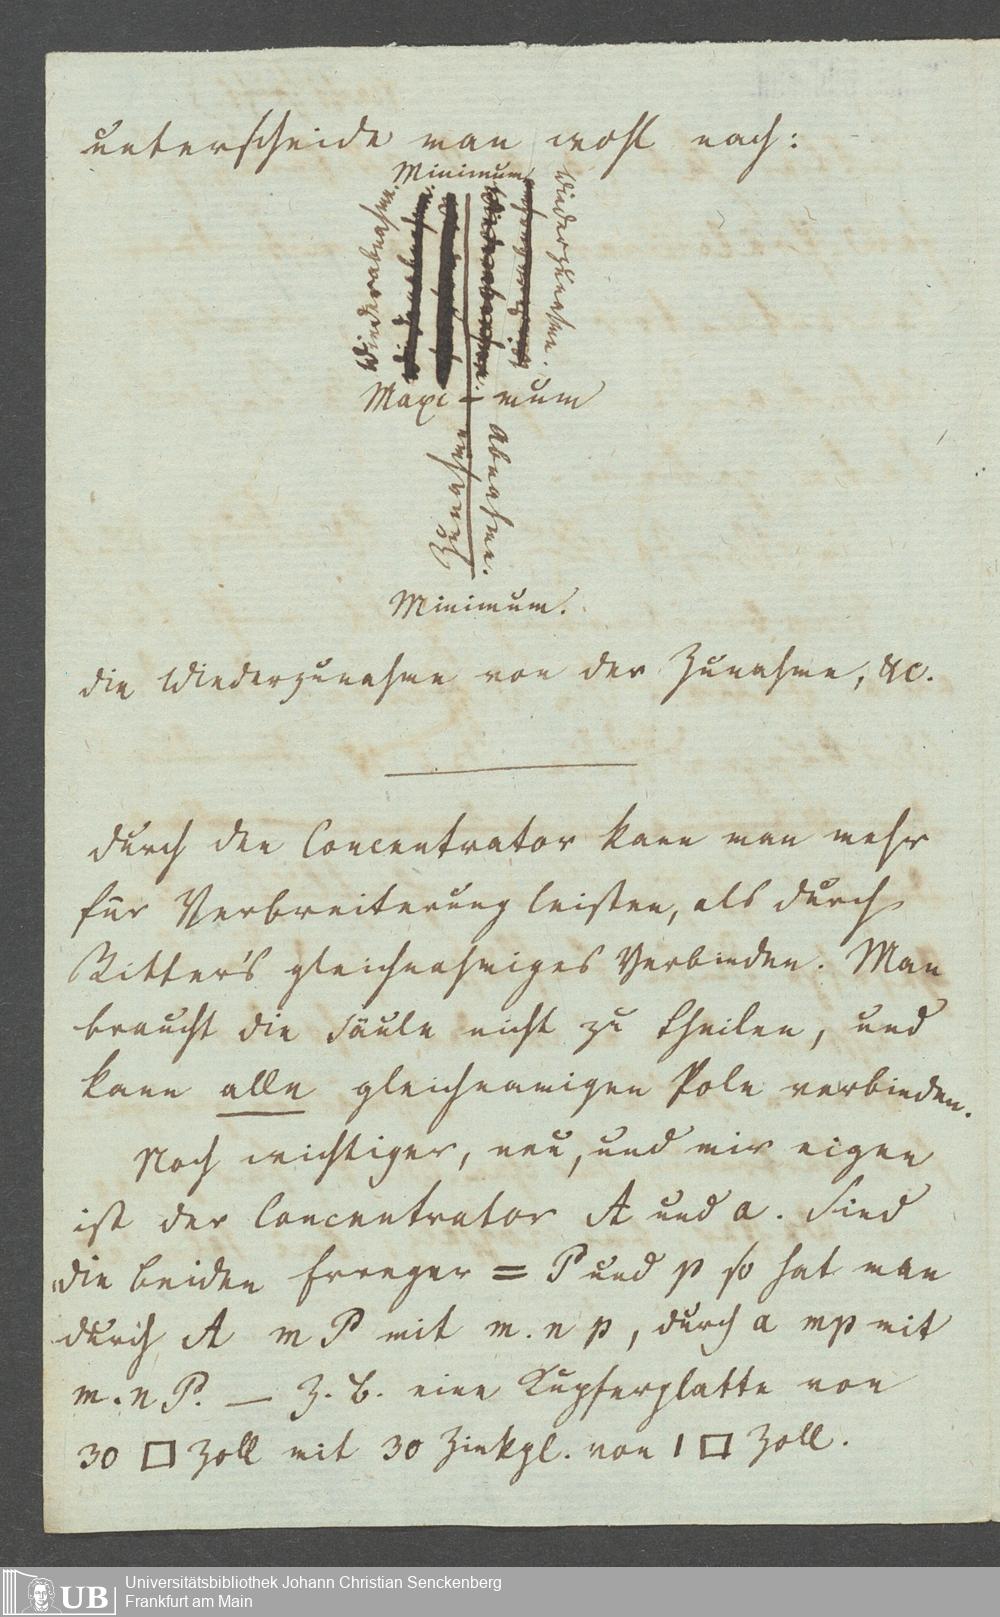 unterscheide man wohl nach:
Minimum
Wiederabnahme.
Wiederzunahme.
Maxi - mum
Zunahme
Abnahme.
Minimum.
die Wiederzunahme von der Zunahme, &c.
Durch den Concentrator kann man mehr
für Verbreiterung leisten, als durch
Ritter's gleichnahmiges Verbinden. Man
braucht die Säule nicht zu theilen, und
kann alle gleichnamigen Pole verbinden.
Noch wichtiger, neu, und mir eigen
ist der Concentrator A und a. Sind
die beiden Erreger = P und p so hat man
durch A m P mit m . n p, durch a mp mit
m . n P. — Z. B. eine Kupferplatte von
30 □ Zoll mit 30 Zinkpl. von 1 □ Zoll.
UB
Universitätsbibliothek Johann Christian Senckenberg
Frankfurt am Main